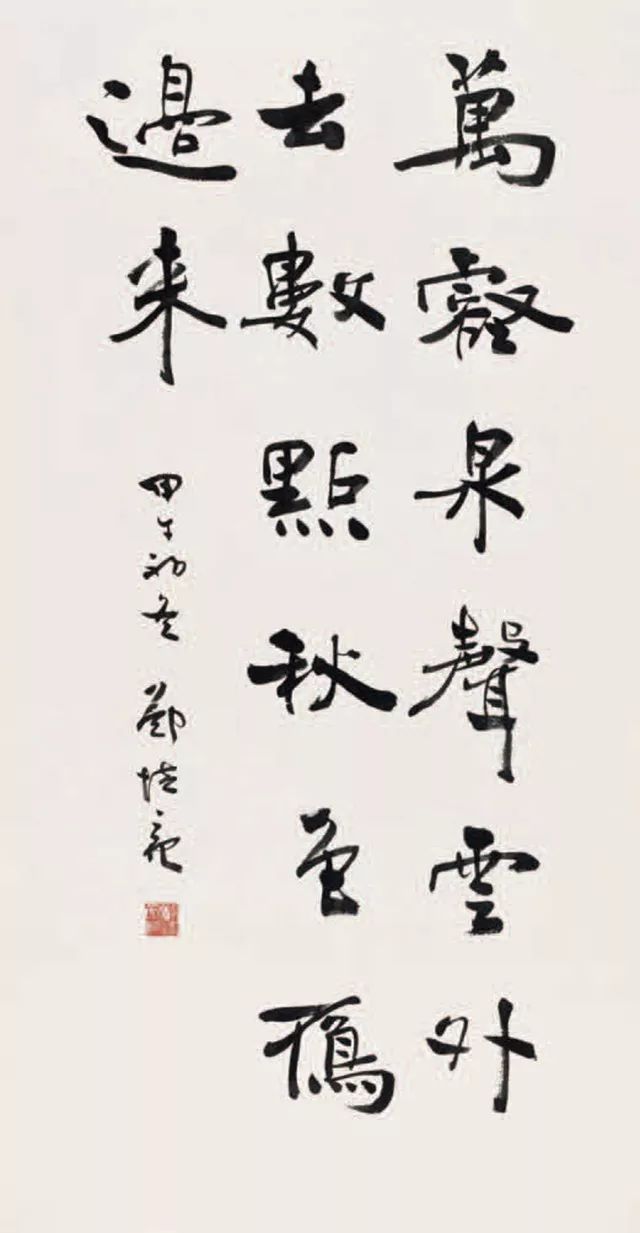 萬壑泉聲雲外
去數點秋色鴈
邊来
甲午初冬 鄭培亮